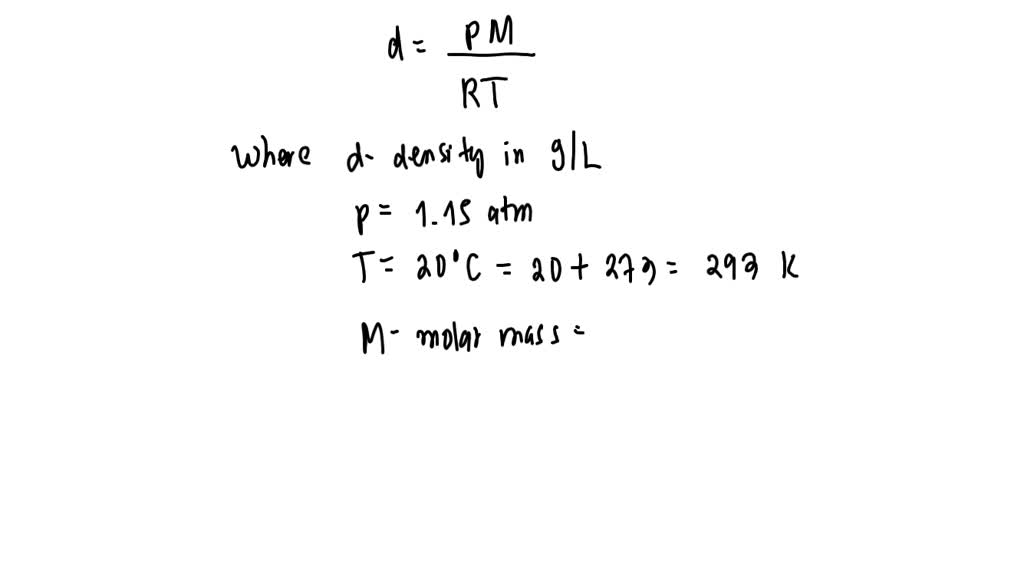 d = PM / RT
Where d- density in g/L
P = 1.15 atm
T = 20°C = 20 + 273 = 293 K
M- molar mass =